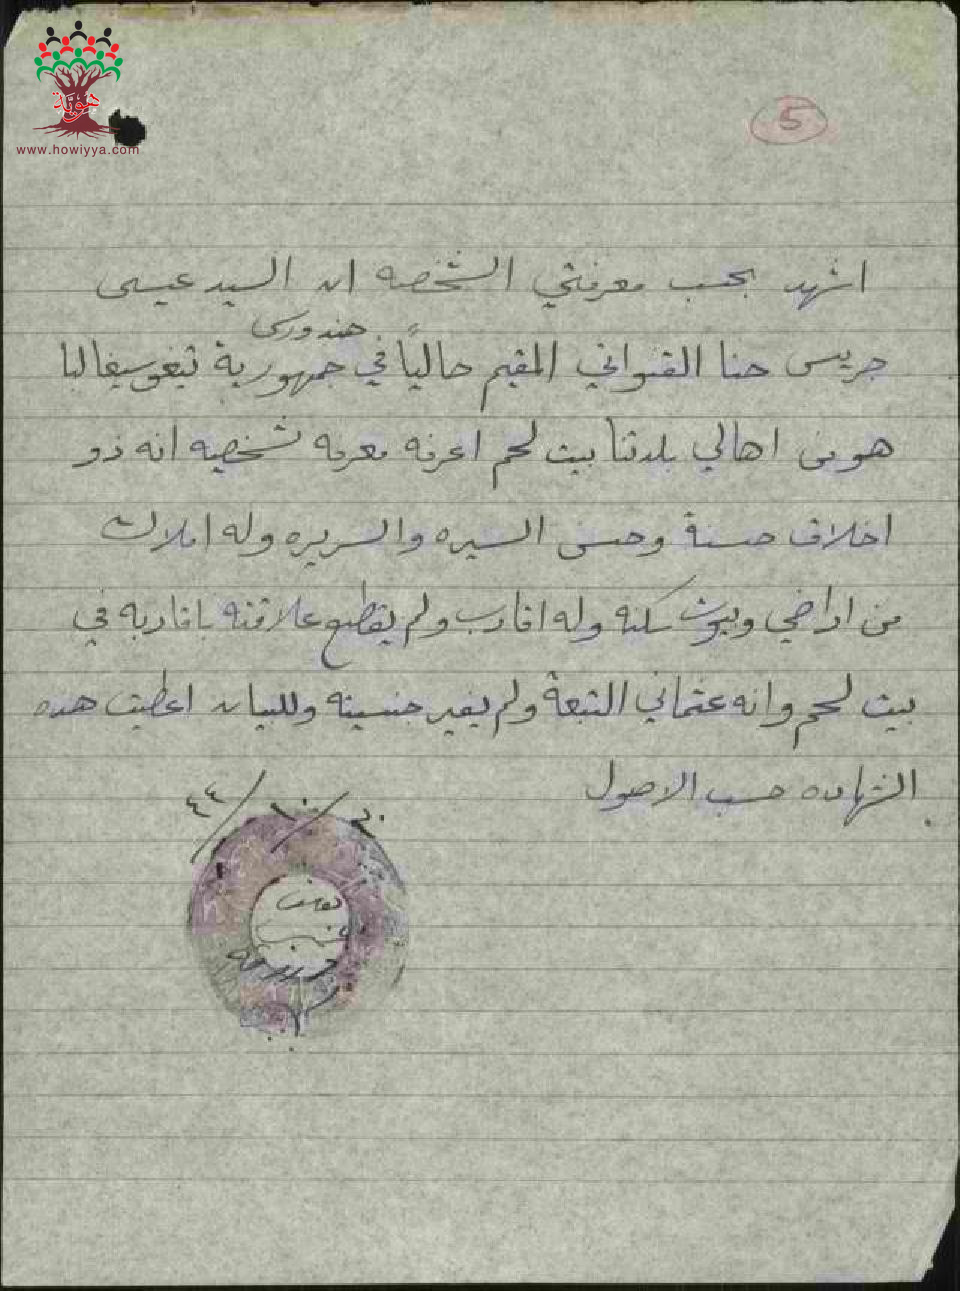 هوية
www.howiyya.com
5
اشهد بحسب معرفتي الشخصيه ان السيد عيسى
هندورس
جريس حنا القنواتي المقيم حالياً في جمهورية تيغوسيغالبا
هو من اهالي بلدتنا بيت لحم اعرفه معرفه شخصيه انه ذو
اخلاق حسنة وحسن السيره والسريره وله املاك
من اراضي وبيوت سكنه وله اقارب ولم يقطع علاقته باقاربه في
بيت لحم وانه عثماني التبعة ولم يغير جنسيته وللبيان اعطيت هذه
الشهاده حسب الاصول .
٢٠/١٠/٤٤